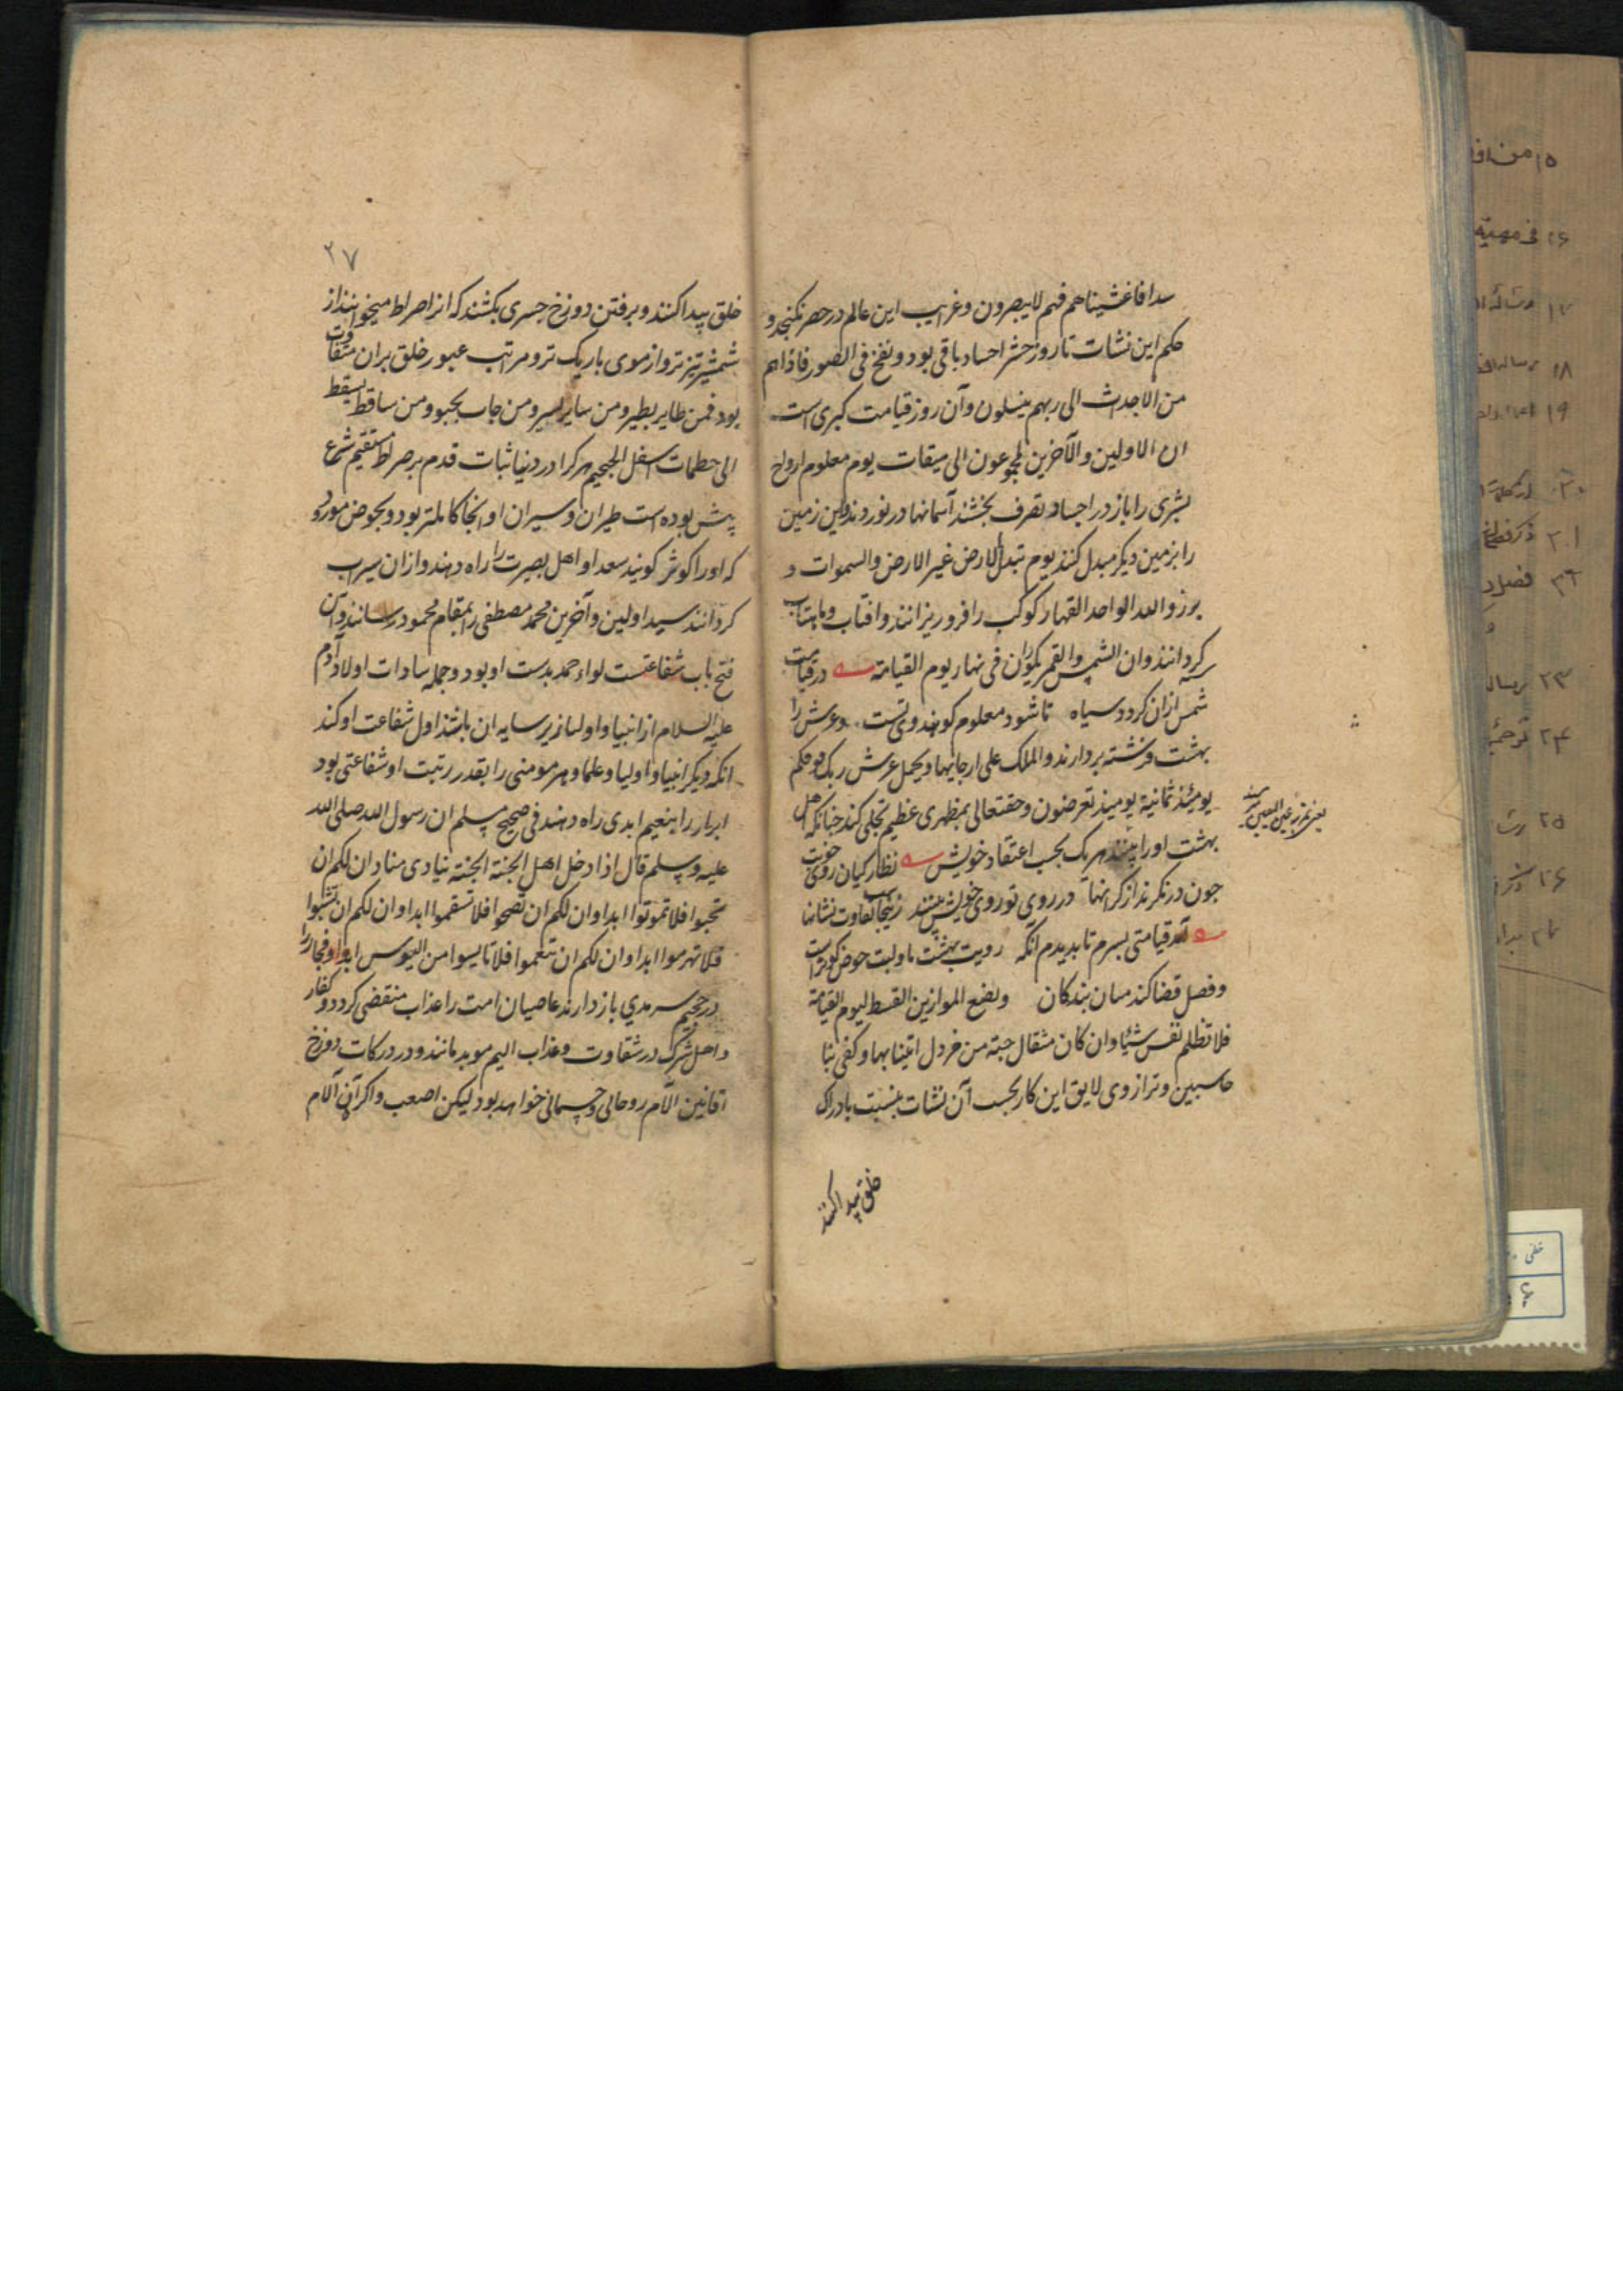 سدا فاغشیناهم فهم لا یبصرون و غرایب این عالم در حصر نکنجد و
حکم این نشات تا روز حشر اجساد باقی بود و نفخ فی الصور فاذا هم
من الاجداث الی ربهم ینسلون و آن روز قیامت کبری است
ان الاولین والآخرین لمجموعون الی میقات یوم معلوم ارواح
بشری را باز در اجساد تصرف بخشند آسمانها در نوردند و این زمین
را بزمین دیکر مبدل کنند یوم تبدل الارض غیر الارض والسموات و
برزوا لله الواحد القهار کوکب را فرو ریزانند و افتاب و ماهتاب
کردانند وان الشمس والقمر یکوران فی نهار یوم القیامة در قیامت
شمس ازان کردد سیاه تا شود معلوم کو هندوی تست و عرش را
بهشت فرشته بردارند والملک علی ارجایها و یحمل عرش ربک فوقهم
یومئذ ثمانیة یومیذ تعرضون و حقتعالی بمظهری عظیم تجلی کند جنانکه اهل
بهشت او را بینند هر یک بحسب اعتقاد خویش نظارکیان روی خوبت
جون در نکرند از کرانها در روی تو روی خویش بینند زینجاست تفاوت نشانها
آمد قیامتی بسرم تا بدیدم انکه رویت بهشت ما و لبت حوض کوثر است
و فصل قضا کند میان بندکان و نضع الموازین القسط لیوم القیامة
فلا تظلم نفس شیئا وان کان مثقال حبة من خردل اتینا بها و کفی بنا
حاسبین و ترازوی لایق این کار بحسب آن نشات بنسبت با ادراک
خلق پیدا کنند
۲۷
خلق پیدا کنند و بر فتن دوزخ جسری بکشند که انرا صراط میخوانند از
شمشیر تیزتر و از موی باریک تر و مراتب عبور خلق بران متفاوت
بود فمن طایر یطیر و من سایر یسیر و من حاب یحبو و من ساقط یسقط
الی حطمات اسفل الجحیم هر کرا در دنیا ثبات قدم بر صراط مستقیم شرع
پیش بوده است طیران و سیران او انجا کاملتر بود و بحوض مورود
که او را کوثر کویند سعدا و اهل بصیرت را راه دهند و ازان سیراب
کردانند سید اولین و آخرین محمد مصطفی را بمقام محمود رسانند و آن
فتح باب شفاعتست لواء حمد بدست او بود و جمله سادات اولاد آدم
علیه السلام از انبیا و اولیا زیر سایه ان باشند اول شفاعت او کند
انکه دیکر انبیا و اولیا و علما و هر مومنی را بقدر رتبت او شفاعتی بود
ابرار را بنعیم ابدی راه دهند فی صحیح مسلم ان رسول الله صلی الله
علیه وسلم قال اذا دخل اهل الجنة الجنة ینادی مناد ان لکم ان
تحیوا فلا تموتوا ابدا وان لکم ان تصحوا فلا تسقموا ابدا وان لکم ان تشبوا
فلا تهرموا ابدا وان لکم ان تنعموا فلا تایسوا من البوس ابدا و فجار را
در جحیم سرمدی باز دارند عاصیان امت را عذاب منقضی کردد و کفار
و اهل شرک در شقاوت و عذاب الیم موبد مانند و در درکات دوزخ
افانین آلام روحانی و جسمانی خواهد بود لیکن اصعب و اکر آن آلام